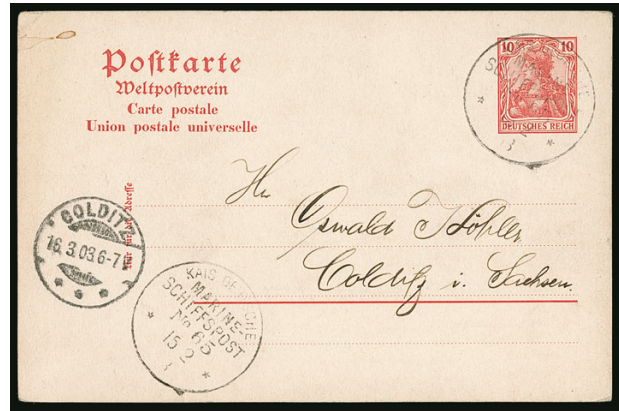 Postkarte
Weltpostverein
Carte postale
Union postale universelle
10 10
DEUTSCHES REICH
Nur für die Adresse
Hn
Oswald Köhler
Colditz i. Sachsen.
COLDITZ
16.3.03.6-7
KAIS. DEUTSCHE
MARINE-
SCHIFFSPOST
No 65
15 2
3